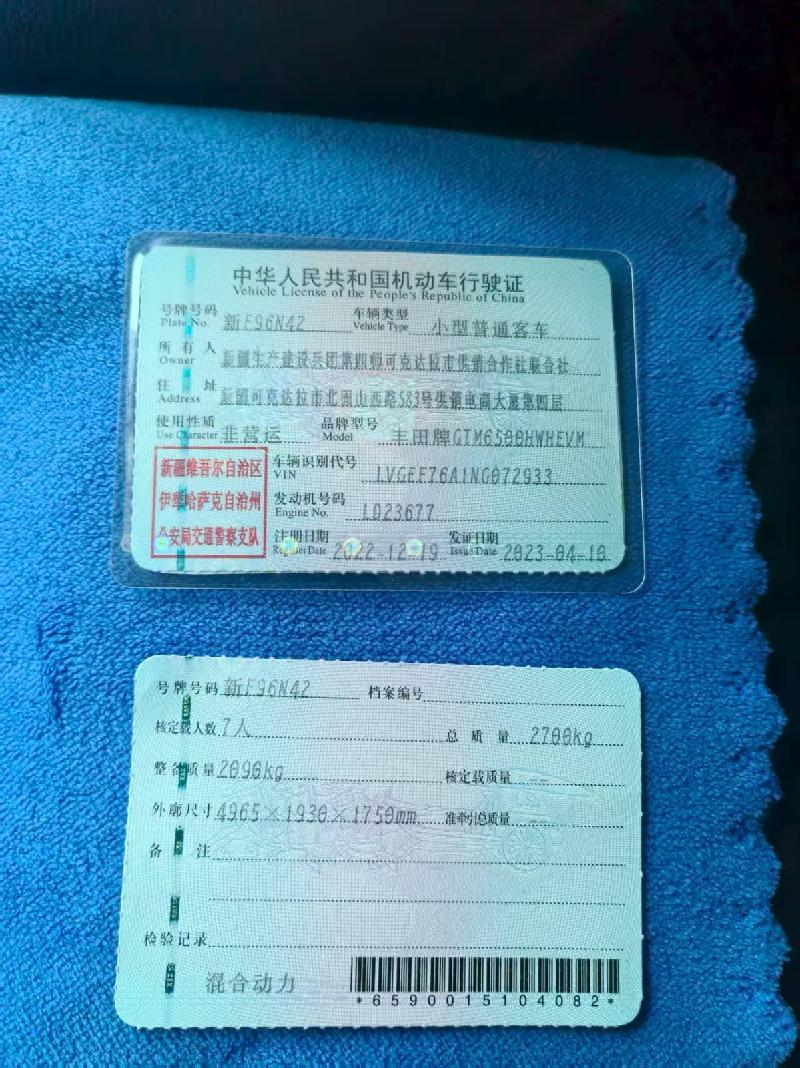 中华人民共和国机动车行驶证
Vehicle License of the People's Republic of China
号牌号码 新F96N42 车辆类型 小型普通客车
Plate No. Vehicle Type
所有人 新疆生产建设兵团第四师可克达拉市供销合作社联合社
Owner
住址 新疆可克达拉市北固山西路583号供销电商大厦第四层
Address
使用性质 非营运 品牌型号 丰田牌GTM6500HWHEVM
Use Character Model
新疆维吾尔自治区
伊犁哈萨克自治州
公安局交通警察支队
车辆识别代号 LVGEF76A1NG072933
VIN
发动机号码 L023677
Engine No.
注册日期 2022-12-19 发证日期 2023-04-10
Register Date Issue Date
号牌号码 新F96N42 档案编号
核定载人数 7人 总质量 2700kg
整备质量 2090kg 核定载质量 --
外廓尺寸 4965×1930×1750mm 准牵引总质量 --
备注
检验记录
混合动力
*6590015104082*